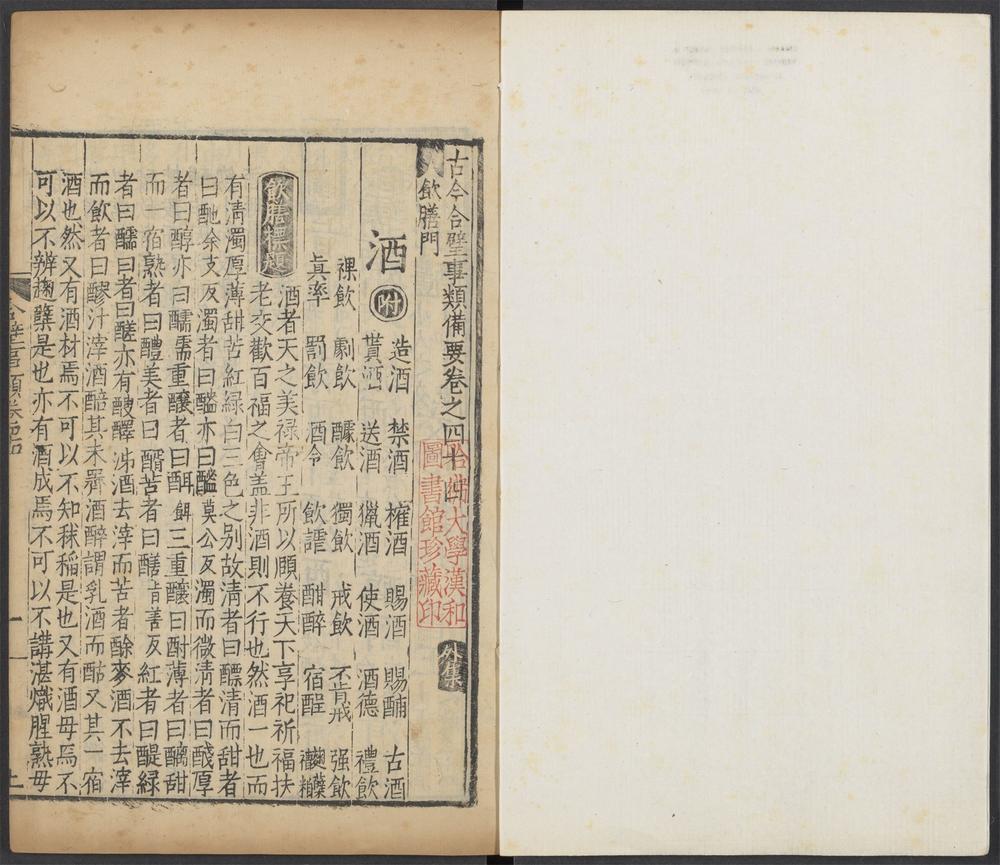 古今合璧事類備要卷之四十四
外集
哈佛大學漢和圖書館珍藏印
飲膳門
酒 附 造酒 禁酒 榷酒 賜酒 賜酺 古酒
貰酒 送酒 獵酒 使酒 酒德 禮飲
裸飲 劇飲 醵飲 獨飲 戒飲 丕責戒 强飲
真率 罰飲 酒令 飲讙 酣醉 宿酲 麴糵
飲膳標題 酒者天之美禄帝王所以頥養天下享祀祈福扶
老交歡百福之會盖非酒則不行也然酒一也而
有清濁厚薄甜苦紅緑白三色之别故清者曰醥清而甜者
曰酏余支反濁者曰醠亦曰醠莫公反濁而微清者曰醆厚
者曰醇亦曰醹需重釀者曰酘餌三重釀曰酎薄者曰醨甜
而一宿熟者曰醴美者曰醑苦者曰醔肯善反紅者曰醍緑
者曰醽曰者曰醝亦有醙醳沸酒去滓而苦者酴麥酒不去滓
而飲者曰醪汁滓酒醅其未霽酒醉謂乳酒而酤又其一宿
酒也然又有酒材焉不可以不知秫稻是也又有酒毋焉不
可以不辨麹糵是也亦有酒成焉不可以不講湛熾腥熟毋